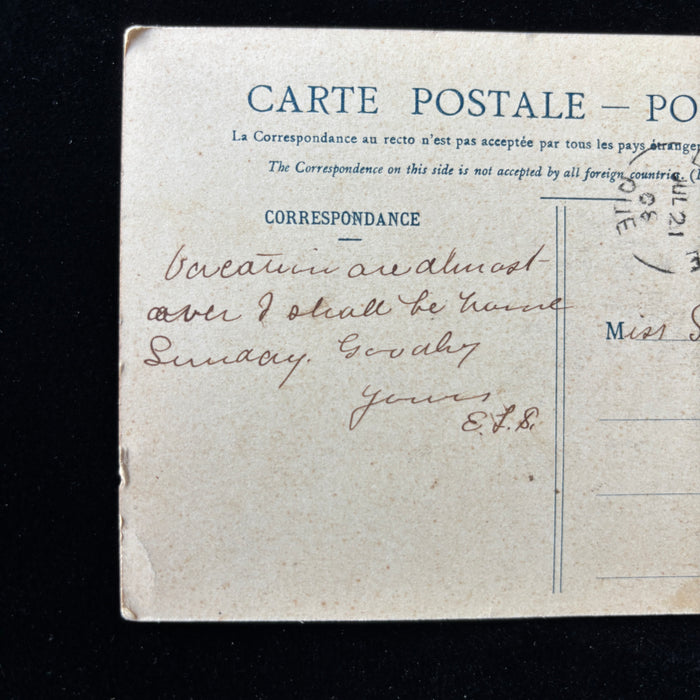 CARTE POSTALE — PO
La Correspondance au recto n'est pas acceptée par tous les pays étranger
The Correspondence on this side is not accepted by all foreign countrie. (
CORRESPONDANCE
Vacation are almost
over I shall be home
Sunday. Goodby
Yours
E.L.S.
JUL 21
08
Miss S